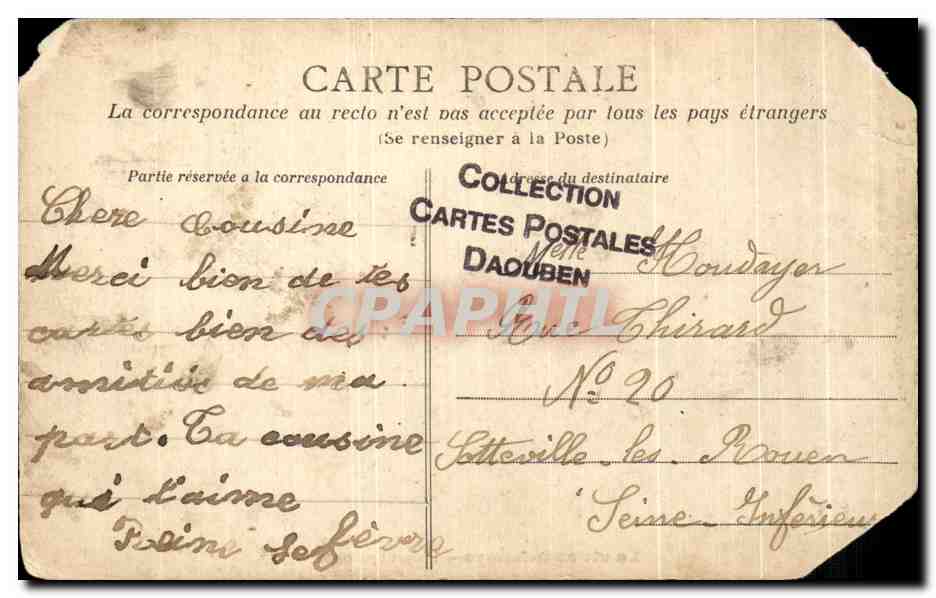 CARTE POSTALE
La correspondance au recto n'est pas acceptée par tous les pays étrangers
(Se renseigner à la Poste)
Partie réservée a la correspondance
Chere Cousine
Merci bien de tes
cartes bien des
amitiés de ma
part. Ta cousine
qui t'aime
Reine Lefèvre
Adresse du destinataire
COLLECTION
CARTES POSTALES
DAOUBEN
Melle Houdayer
Rue Thirard
No 20
Sotteville-les-Rouen
Seine-Inférieu
CPAPHIL